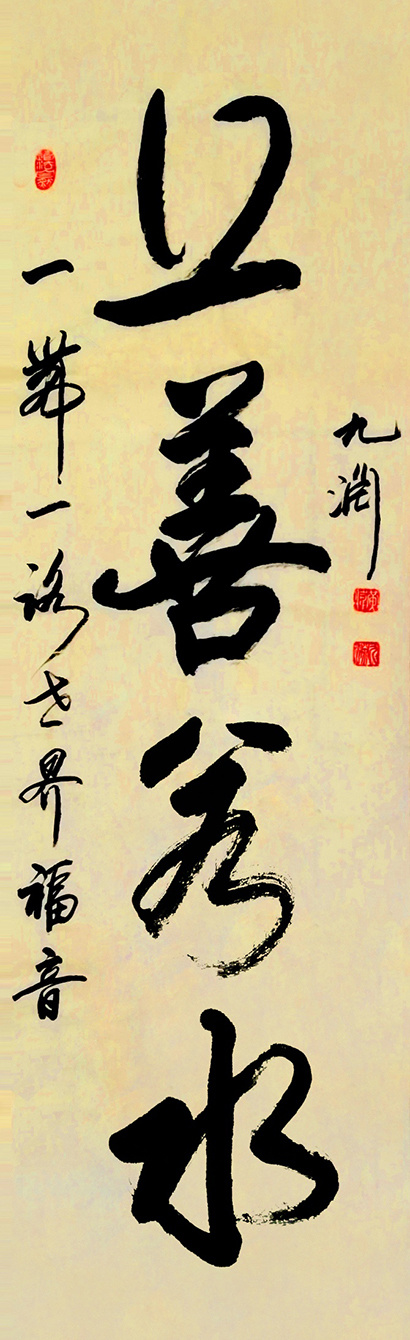 九渊
上善若水
一帶一路世界福音